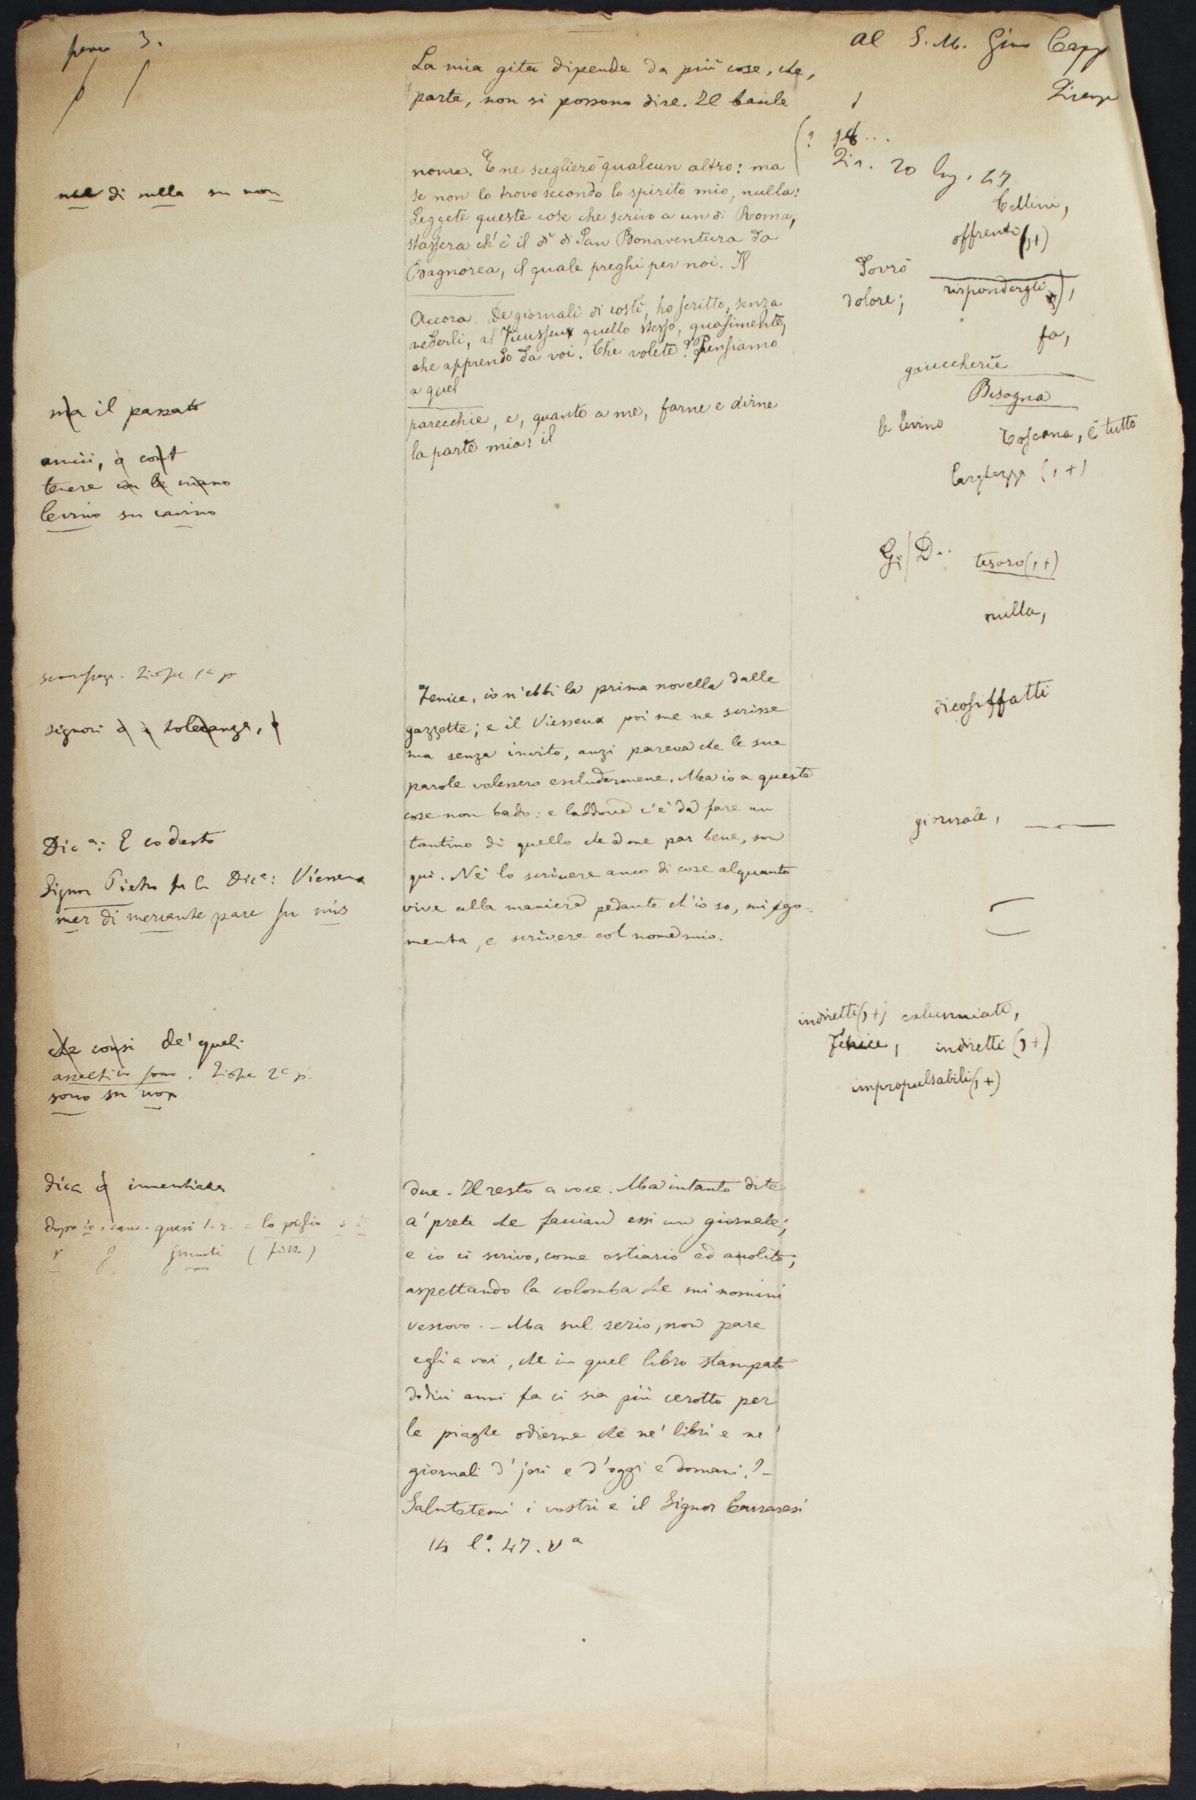 3.
al S. M. Gino Capp
La mia gita dipende da più cose, che,
parte, non si possono dire. Il baule
(? 18...
20 lug. 47
nome. E ne sceglierò qualcun altro: ma
se non lo trovo secondo lo spirito mio, nulla:
Leggete queste cose che scrivo a un di Roma,
stassera ch'è il dì di San Bonaventura da
Bagnorea, il quale preghi per noi. Il
nel di nulla su non
Cellini,
offrenti (,+)
Dovrò rispondergli
dolore;
Ancora. De' giornali di costì, ho scritto, senza
vederli, al Vieusseux quello stesso, quasimente,
che apprendo da voi. Che volete? Pensiamo
a quel
fa,
giuccherie
Bisogna
ma il passato
parecchie, e, quanto a me, farne e dirne
la parte mia: il
le levino Toscana, è tutto
larghezza (,+)
amici, a
tenere con le mano
levino su cavino
G; D..
tesoro (,+)
nulla,
Fenice, io n'ebbi la prima novella dalle
gazzette; e il Vieusseux poi me ne scrisse
ma senza invito, anzi pareva che le sue
parole volessero escludermene. Ma io a queste
cose non bado: e laddove c'è da fare un
tantino di quello che a me par bene, son
qui. Nè lo scrivere anco di cose alquanto
vive alla maniera pedante ch'io so, mi sgo-
menta, e scrivere col nome mio.
dicosiffatti
signori a a toleranza,
giornale,
Dic.a: E codesto
Signor Pietro su la Dic.a: Vieusseux
mer di mercante pare su mis
indiretti (,+) calunniate,
Fenice, indiretti (,+)
impropulsabili (,+)
che consi de' quel-
sono su non
dica immediata
due. Il resto a voce. Ma intanto dite
a' preti che facciano essi un giornale;
e io ci scrivo, come ostiario ed acolito;
aspettando la colomba che mi nomini
vescovo. - Ma sul serio, non pare
egli a voi, che in quel libro stampato
dodici anni fa ci sia più cerotto per
le piaghe odierne che ne' libri e ne'
giornali d'jeri e d'oggi e domani? -
Salutatemi i vostri e il Signor Carraresi
14 l.o 47. V.a